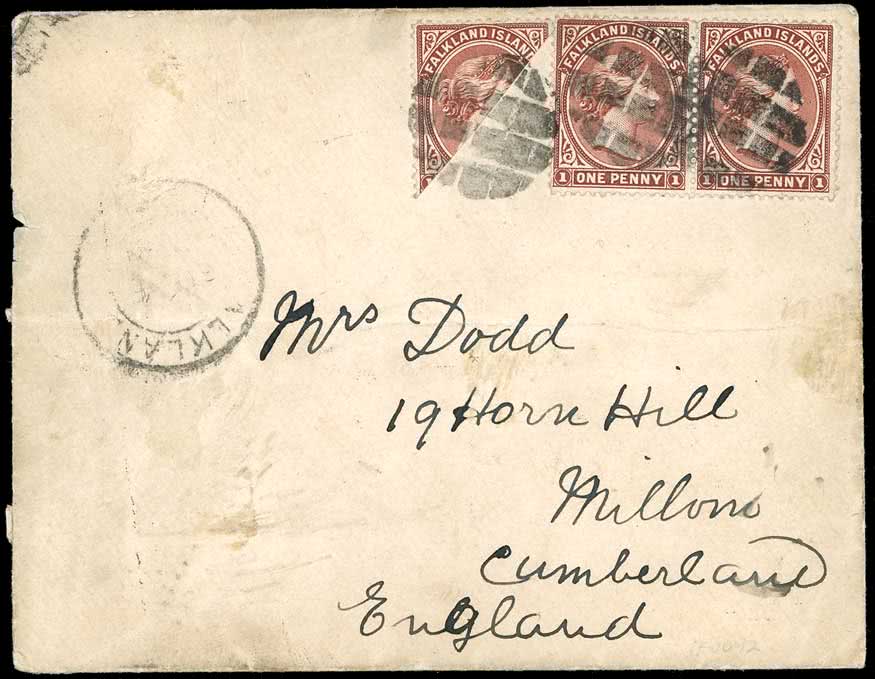 FALKLAND ISLAND
FALKLAND ISLANDS
FALKLAND ISLANDS
1
1 ONE PENNY 1
1 ONE PENNY 1
ALKLAN
Mrs Dodd
19 Horn Hill
Millom
Cumberland
England